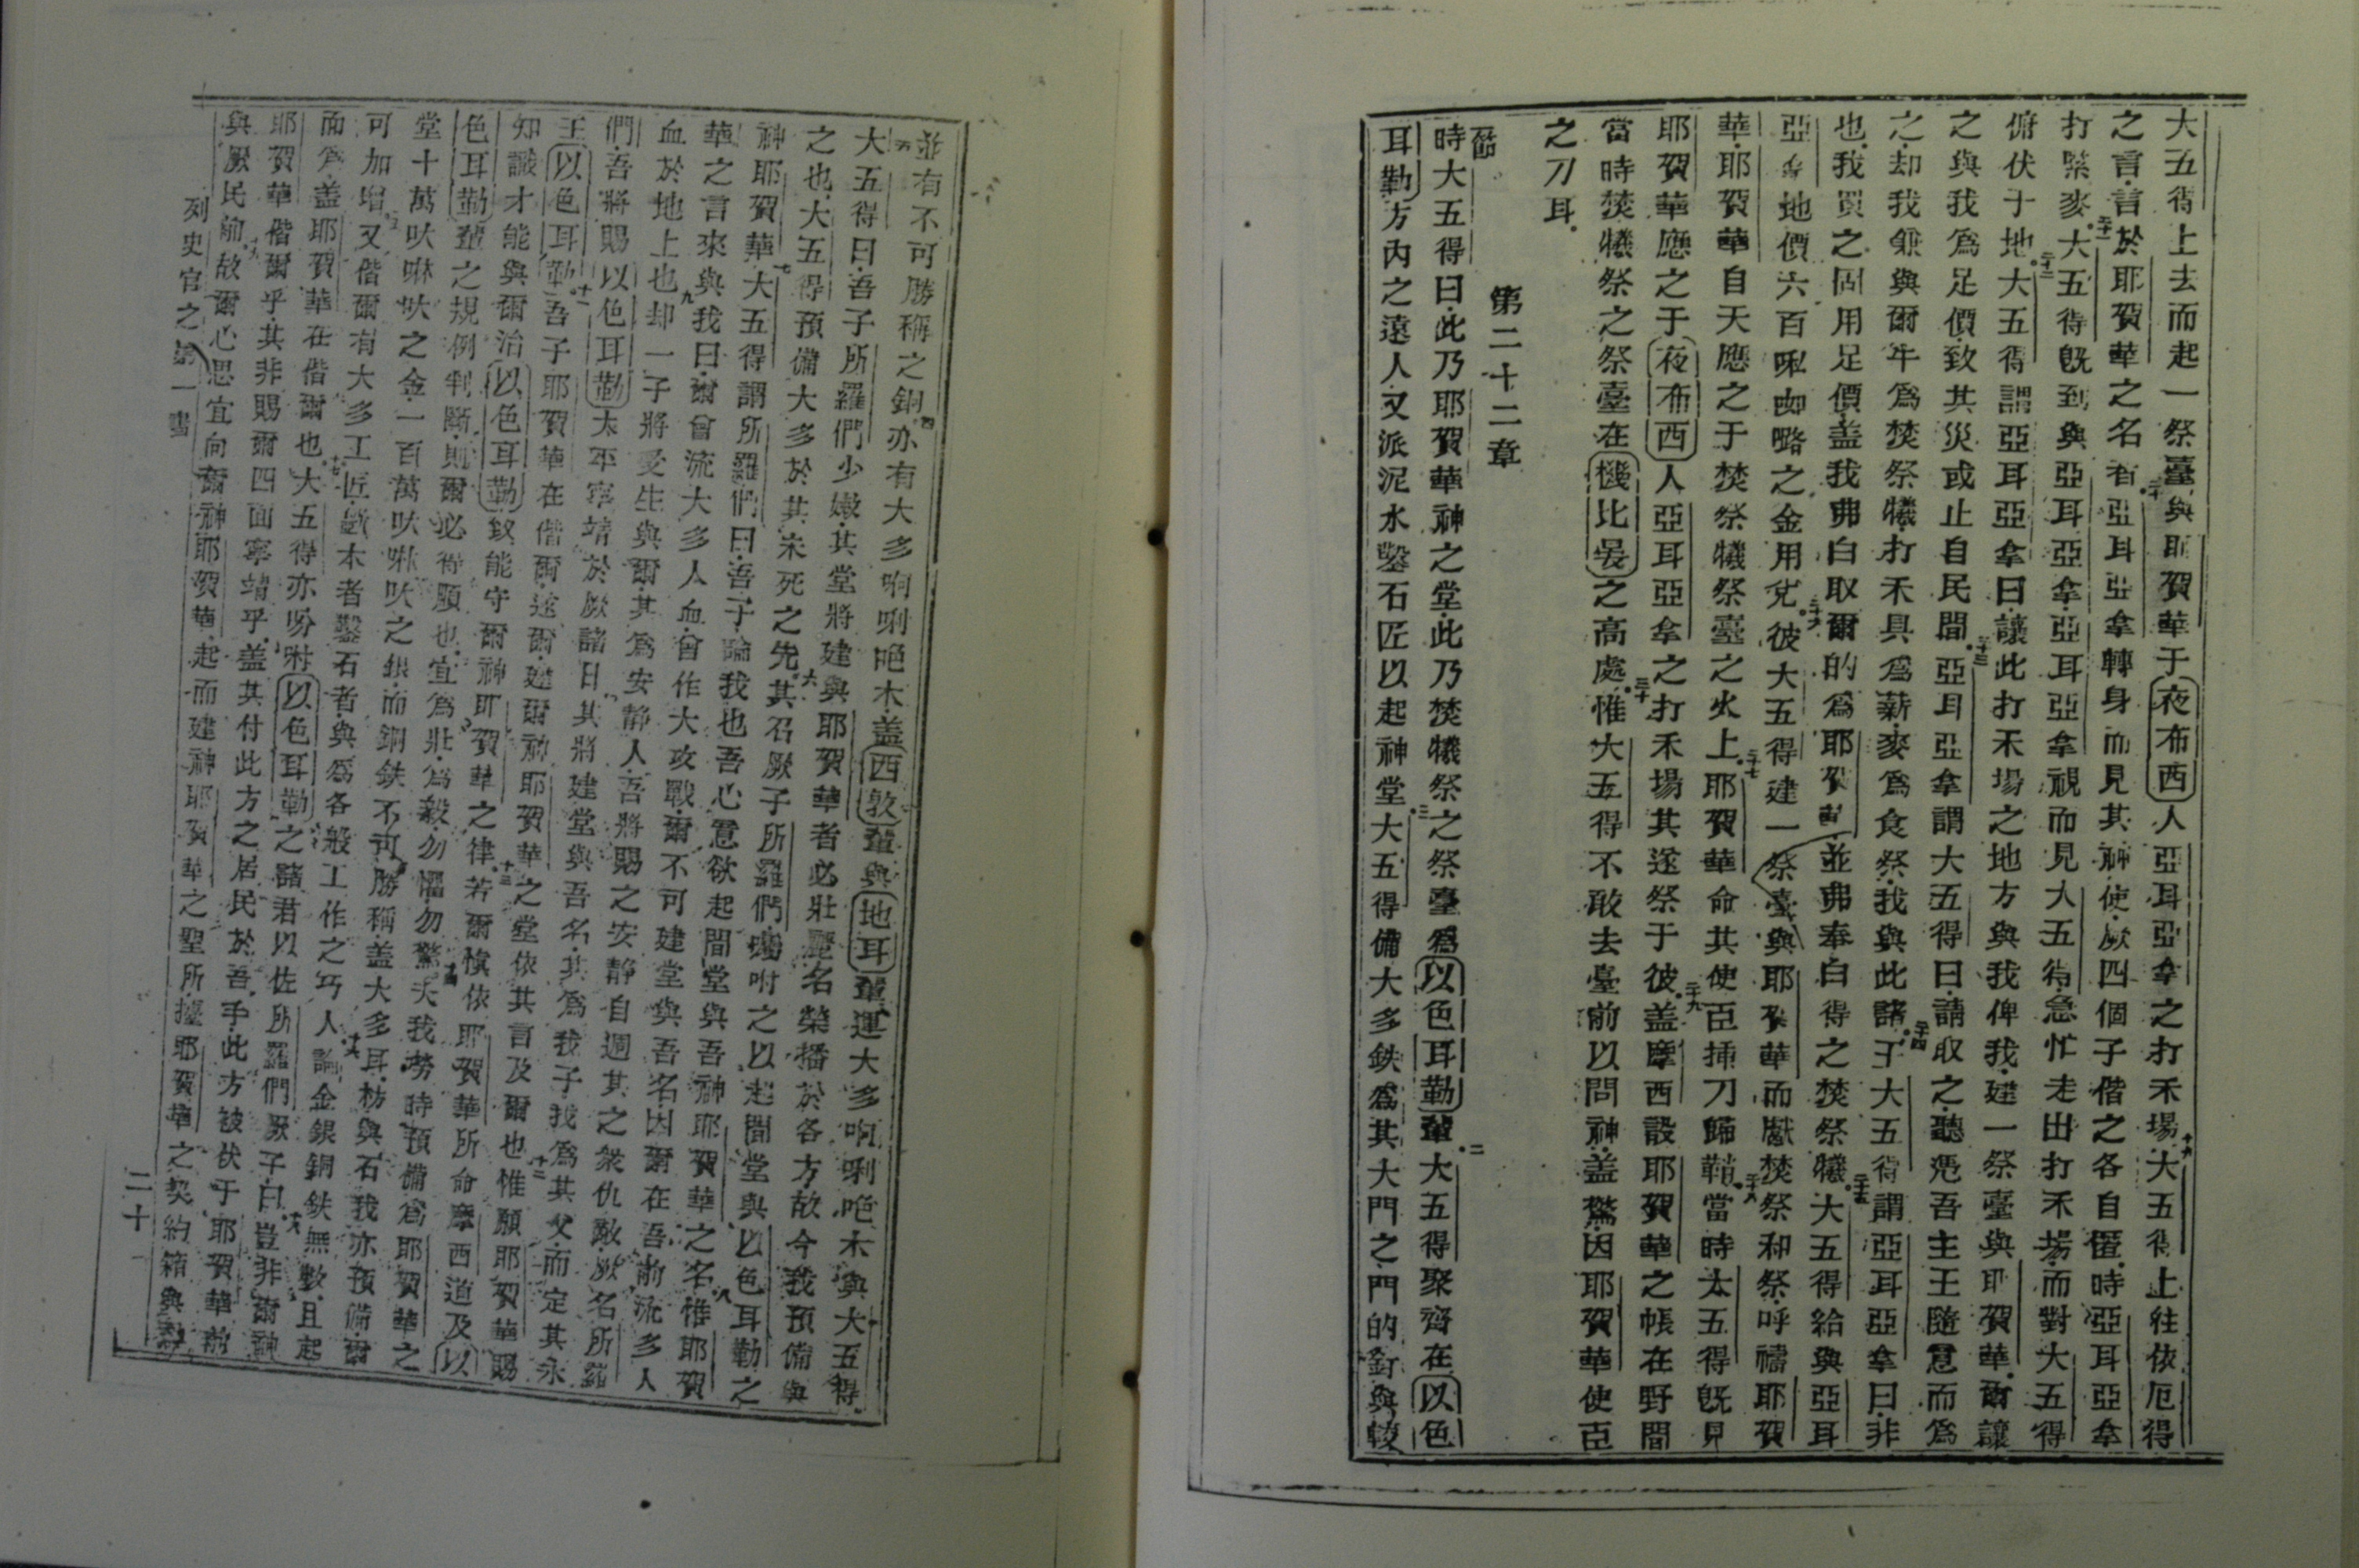 大五得上去而起一祭臺與耶賀華于夜布西人亞耳亞拿之打禾場十九大五得上往依厄得
之言言於耶賀華之名者二十亞耳亞拿轉身而見其神使厥四個子偕之各自匿時亞耳亞拿
打緊麥二十一大五得旣到與亞耳亞拿亞耳亞拿視而見大五得急忙走出打禾場而對大五得
俯伏于地二十二大五得謂亞耳亞拿曰讓此打禾場之地方與我俾我建一祭臺與耶賀華爾讓
之與我爲足價致其災或止自民間二十三亞耳亞拿謂大五得曰請取之聽慿吾主王隨意而爲
之却我與爾牛爲焚祭犧打禾具爲薪麥爲食祭我與此諸二十四王大五得謂亞耳亞拿曰非
也我買之固用足價盖我弗白取爾的爲耶賀華並弗奉白得之焚祭犧二十五大五得給與亞耳
亞拿地價六百之金用兌二十六彼大五得建一祭臺與耶賀華而獻焚祭和祭呼禱耶賀
華耶賀華自天應之于焚祭犧祭臺之火上二十七耶賀華命其使臣揷刀歸鞘二十八當時大五得旣見
耶賀華應之于夜布西人亞耳亞拿之打禾場其遂祭于彼二十九盖摩西設耶賀華之帳在野間
當時焚犧祭之祭臺在機比晏之高處三十惟大五得不敢去臺前以問神盖驚因耶賀華使臣
之刀耳
第二十二章
節
時大五得曰此乃耶賀華神之堂此乃焚犧祭之祭臺爲以色耳勒輩二大五得聚齊在以色
耳勒方內之遠人又派泥水鑿石匠以起神堂三大五得備大多鉄爲其大門之門的釘與較
並有不可勝稱之銅四亦有大多啊唎吧木盖西敦輩與地耳輩運大多啊唎吧木與大五得
五大五得曰吾子所羅們少嫩其堂將建與耶賀華者必壯麗名榮播於各方故今我預備與
之也大五得預備大多於其未死之先六其召厥子所羅們囑咐之以起間堂與以色耳勒之
神耶賀華七大五得謂所羅們曰吾子論我也吾心意欲起間堂與吾神耶賀華之名八惟耶賀
華之言來與我曰爾曾流大多人血曾作大攻戰爾不可建堂與吾名因爾在吾前流多人
血於地上也九却一子將受生與爾其爲安静人吾將賜之安静自週其之衆仇敵厥名所羅
們吾將賜以色耳勒太平寧靖於厥諸日十其將建堂與吾名其爲我子我爲其父而定其永
王以色耳勒十一吾子耶賀華在偕爾遂爾建爾神耶賀華之堂依其言及爾也十二惟願耶賀華賜
知識才能與爾治以色耳勒致能守爾神耶賀華之律十三若爾愼依耶賀華所命摩西道及以
色耳勒輩之規例判斷則爾必得順也宜爲壯爲毅勿懼勿驚十四夫我勞時預備爲耶賀華之
堂十萬吠㖁吠之金一百萬吠㖁吠之銀而銅鉄不可勝稱盖大多耳枋與石我亦預備爾
可加增十五又偕爾有大多工匠劈木者鑿石者與爲各般工作之巧人十六論金銀銅鉄無數且起
而爲盖耶賀華在偕爾也十七大五得亦吩咐以色耳勒之諸君以佐所羅們厥子曰十八豈非爾神
耶賀華偕爾乎其非賜爾四面寧靖乎盖其付此方之居民於吾手此方被伏于耶賀華前
與厥民前十九故爾心思宜向爾神耶賀華起而建神耶賀華之聖所擡耶賀華之契約箱與
列史官之第一書
二十